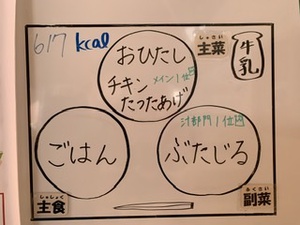 617 kcal
おひたし
チキン
たったあげ
メイン1位
しゅさい
主菜
牛乳
ごはん
汁部門1位
ぶたじる
しゅしょく
主食
ふくさい
副菜